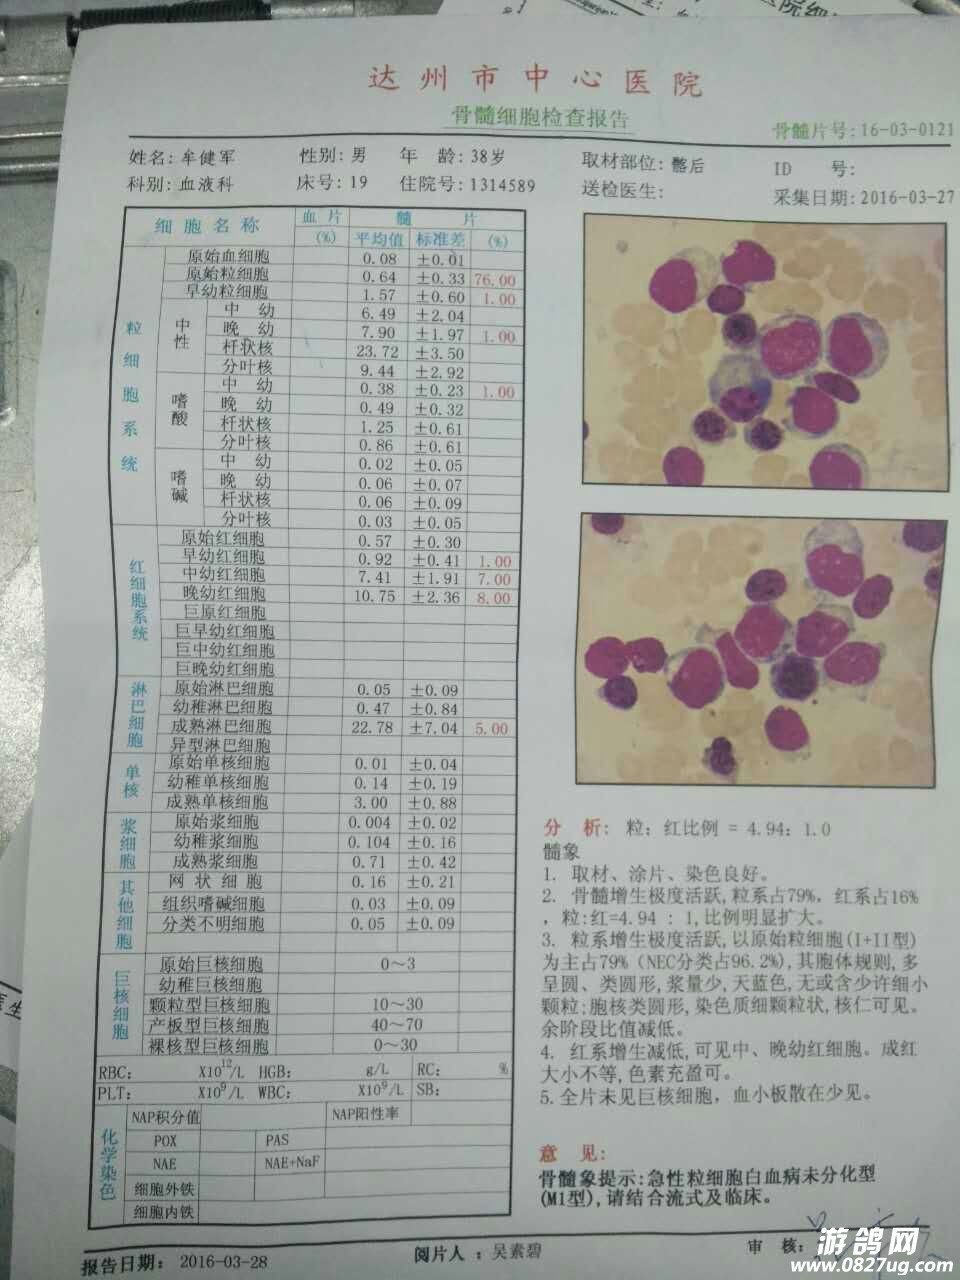 达州市中心医院
骨髓细胞检查报告
骨髓片号:16-03-0121
姓名:牟健军 性别:男 年 龄:38岁 取材部位:髂后 ID 号:
科别:血液科 床号:19 住院号:1314589 送检医生: 采集日期:2016-03-27
细胞名称 血片 髓 片
(%) 平均值 标准差 (%)
粒细胞系统
原始血细胞 0.08 ±0.01
原始粒细胞 0.64 ±0.33 76.00
早幼粒细胞 1.57 ±0.60 1.00
中性
中 幼 6.49 ±2.04
晚 幼 7.90 ±1.97 1.00
杆状核 23.72 ±3.50
分叶核 9.44 ±2.92
嗜酸
中 幼 0.38 ±0.23 1.00
晚 幼 0.49 ±0.32
杆状核 1.25 ±0.61
分叶核 0.86 ±0.61
嗜碱
中 幼 0.02 ±0.05
晚 幼 0.06 ±0.07
杆状核 0.06 ±0.09
分叶核 0.03 ±0.05
红细胞系统
原始红细胞 0.57 ±0.30
早幼红细胞 0.92 ±0.41 1.00
中幼红细胞 7.41 ±1.91 7.00
晚幼红细胞 10.75 ±2.36 8.00
巨原红细胞
巨早幼红细胞
巨中幼红细胞
巨晚幼红细胞
淋巴细胞
原始淋巴细胞 0.05 ±0.09
幼稚淋巴细胞 0.47 ±0.84
成熟淋巴细胞 22.78 ±7.04 5.00
异型淋巴细胞
单核
原始单核细胞 0.01 ±0.04
幼稚单核细胞 0.14 ±0.19
成熟单核细胞 3.00 ±0.88
浆细胞
原始浆细胞 0.004 ±0.02
幼稚浆细胞 0.104 ±0.16
成熟浆细胞 0.71 ±0.42
其他细胞
网状细胞 0.16 ±0.21
组织嗜碱细胞 0.03 ±0.09
分类不明细胞 0.05 ±0.09
巨核细胞
原始巨核细胞 0~3
幼稚巨核细胞
颗粒型巨核细胞 10~30
产板型巨核细胞 40~70
裸核型巨核细胞 0~30
RBC: X10¹²/L HGB: g/L RC: %
PLT: X10⁹/L WBC: X10⁹/L SB:
化学染色
NAP积分值 NAP阳性率
POX PAS
NAE NAE+NaF
细胞外铁
细胞内铁
分 析: 粒:红比例 = 4.94: 1.0
髓象
1. 取材、涂片、染色良好。
2. 骨髓增生极度活跃,粒系占79%, 红系占16%
, 粒:红=4.94 : 1,比例明显扩大。
3. 粒系增生极度活跃,以原始粒细胞(I+II型)
为主占79%(NEC分类占96.2%),其胞体规则,多
呈圆、类圆形,浆量少,天蓝色,无或含少许细小
颗粒;胞核类圆形,染色质细颗粒状,核仁可见。
余阶段比值减低。
4. 红系增生减低,可见中、晚幼红细胞。成红
大小不等,色素充盈可。
5.全片未见巨核细胞, 血小板散在少见。
意 见:
骨髓象提示:急性粒细胞白血病未分化型
(M1型),请结合流式及临床。
报告日期: 2016-03-28 阅片人 :吴素碧 审 核:
游鸽网
www.0827ug.com